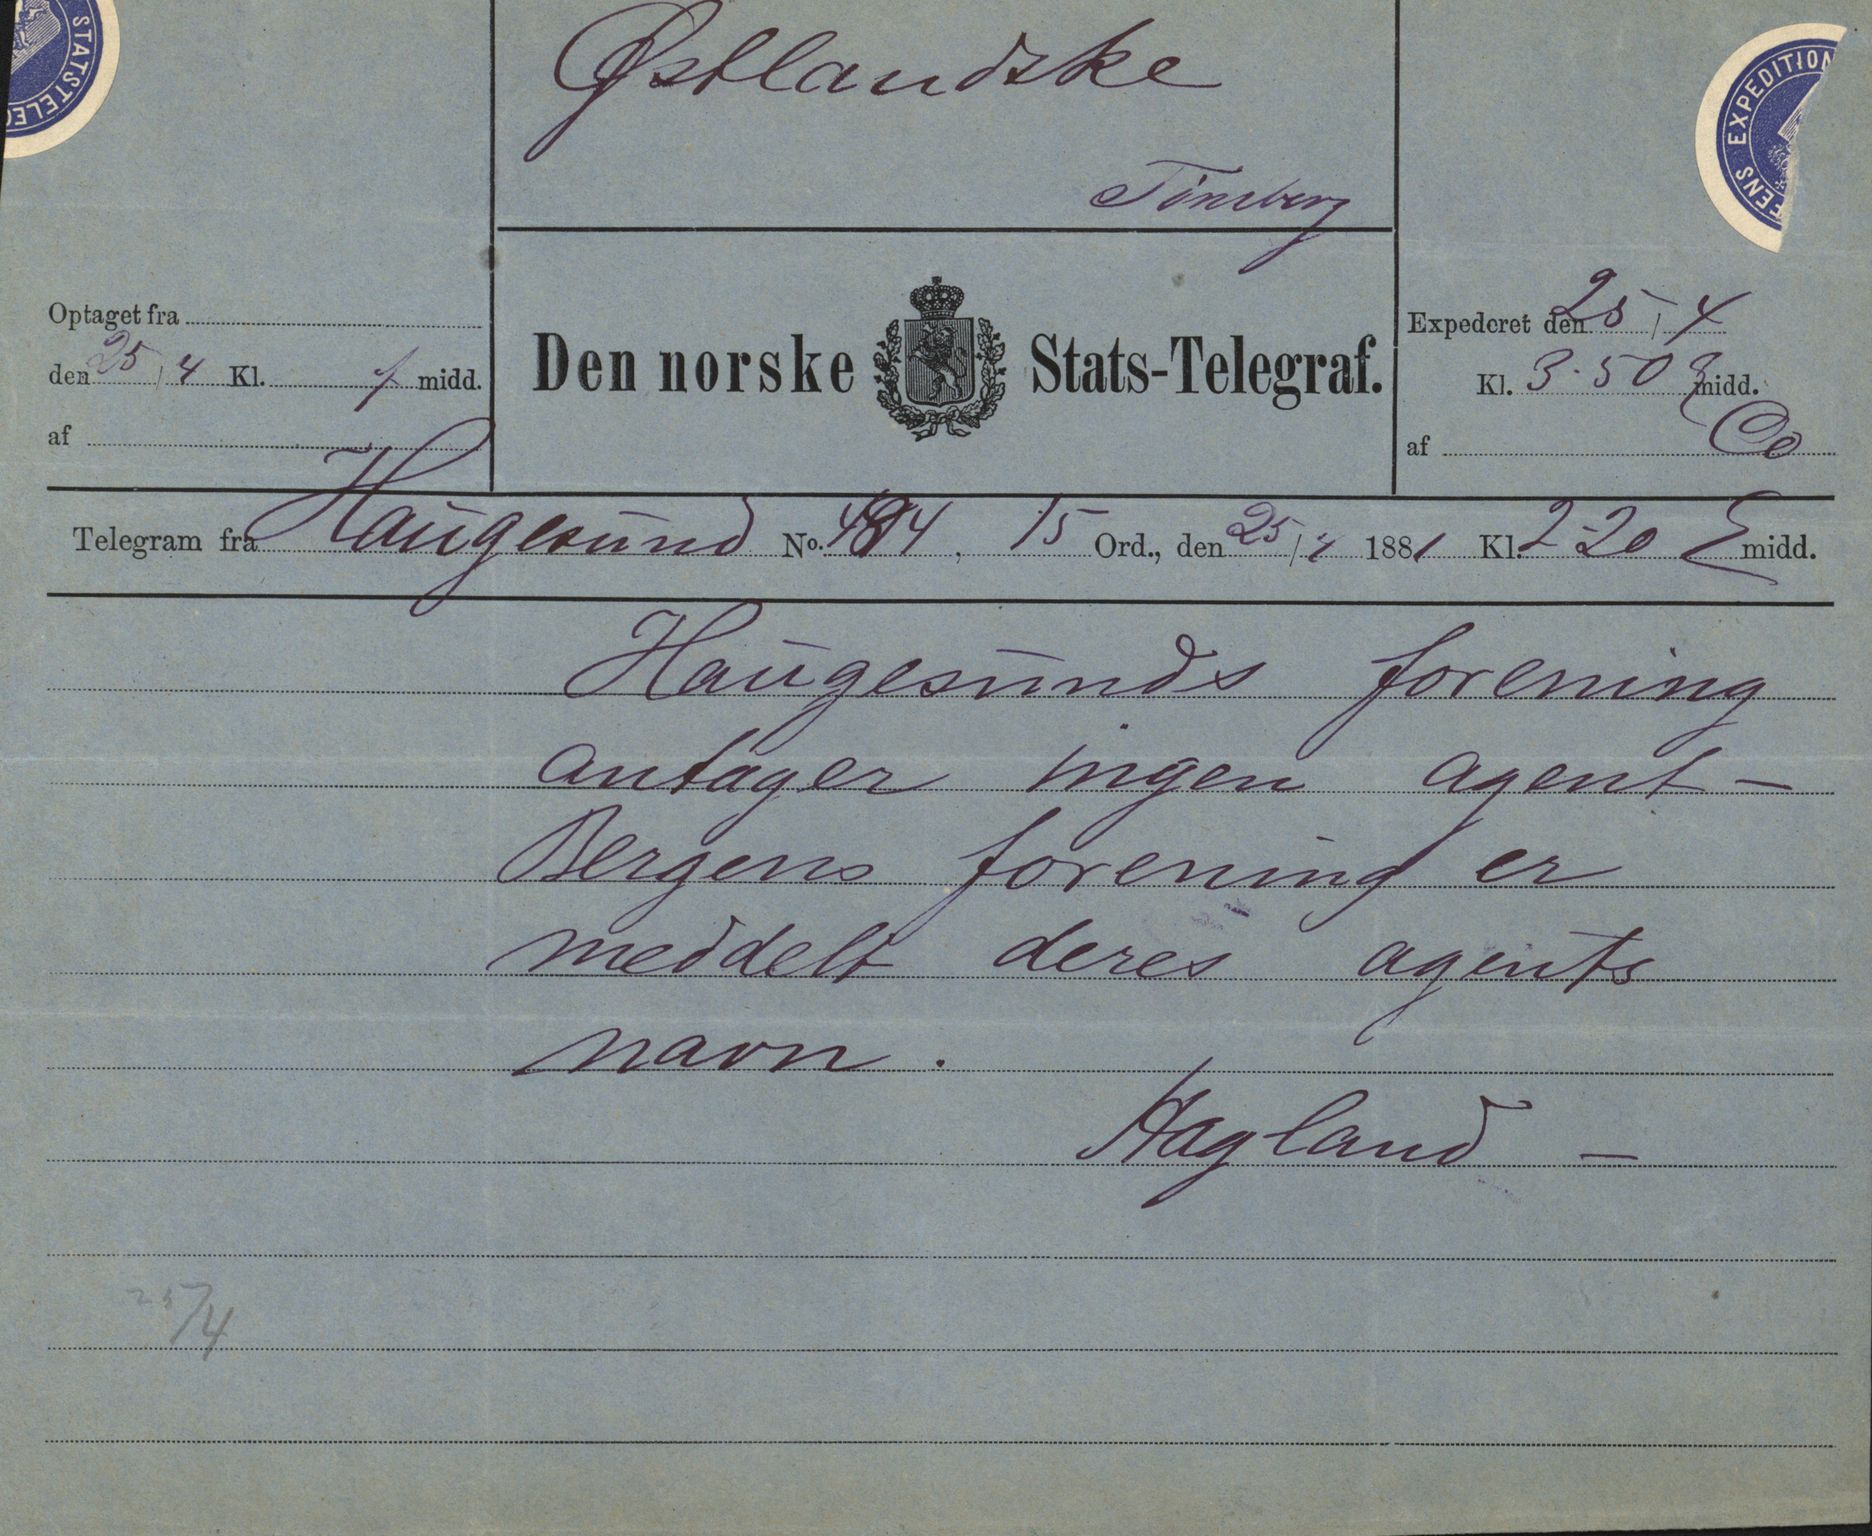 STATSTELEG
FENS EXPEDITION
Østlandske
Tönsberg
Optaget fra
den 25/4 Kl. f midd.
af
Den norske Stats-Telegraf.
Expederet den 25/4
Kl. 3.50 E midd.
af Co
Telegram fra Haugesund No. 484, 15 Ord., den 25/4 1881 Kl. 2-20 E midd.
Haugesunds forening
antager ingen agent –
Bergens forening er
meddelt deres agents
navn.
Hagland –
25/4